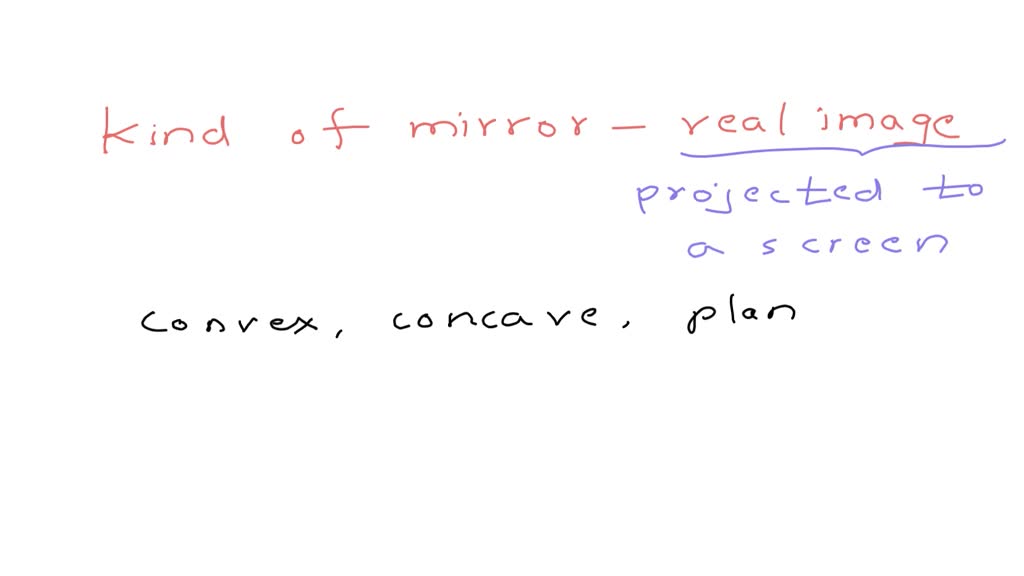 kind of mirror - real image
projected to
a screen
convex, concave, plan